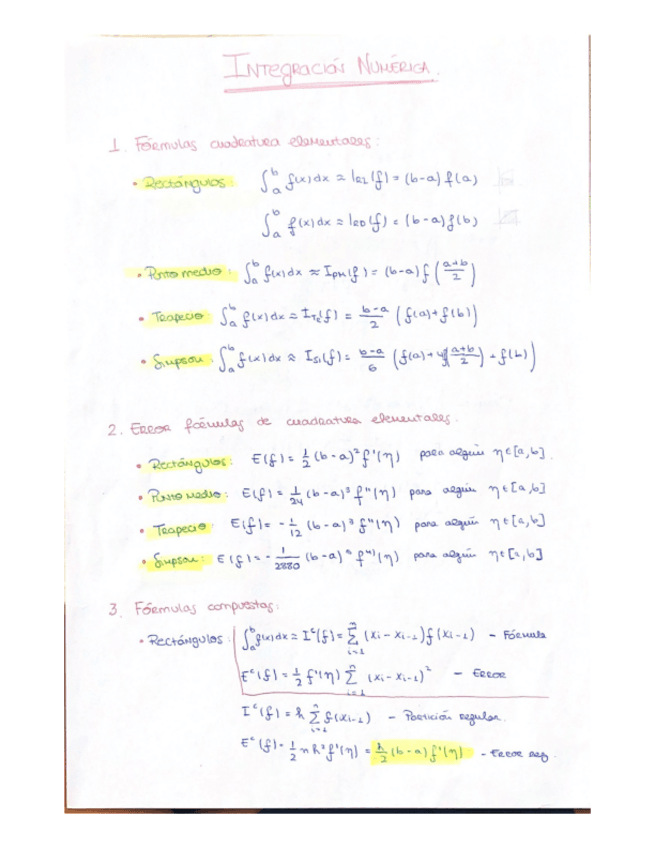 INTEGRACIÓN NUMÉRICA.
1. Fórmulas cuadratura elementales:
• Rectángulos: ∫ₐᵇ f(x)dx ≈ I_R1(f) = (b-a) f(a)
∫ₐᵇ f(x)dx ≈ I_RD(f) = (b-a) f(b)
• Punto medio: ∫ₐᵇ f(x)dx ≈ I_PM(f) = (b-a) f((a+b)/2)
• Trapecio: ∫ₐᵇ f(x)dx ≈ I_TR(f) = (b-a)/2 (f(a)+f(b))
• Simpson: ∫ₐᵇ f(x)dx ≈ I_SI(f) = (b-a)/6 (f(a)+4f((a+b)/2)+f(b))
2. Error fórmulas de cuadratura elementales.
• Rectángulos: E(f) = 1/2 (b-a)² f'(η) para algún η∈[a,b].
• Punto medio: E(f) = 1/24 (b-a)³ f''(η) para algún η∈[a,b]
• Trapecio: E(f) = -1/12 (b-a)³ f''(η) para algún η∈[a,b]
• Simpson: E(f) = -1/2880 (b-a)⁵ f⁴⁾(η) para algún η∈[a,b]
3. Fórmulas compuestas:
• Rectángulos: ∫ₐᵇ f(x)dx ≈ Iᶜ(f) = Σᵢ₌₁ⁿ (xᵢ - xᵢ₋₁) f(xᵢ₋₁) - Fórmula
Eᶜ(f) = 1/2 f'(η) Σᵢ₌₁ⁿ (xᵢ - xᵢ₋₁)² - Error
Iᶜ(f) = h Σᵢ₌₁ⁿ f(xᵢ₋₁) - Partición regular.
Eᶜ(f) = 1/2 n h² f'(η) = h/2 (b-a) f'(η) - Error reg.